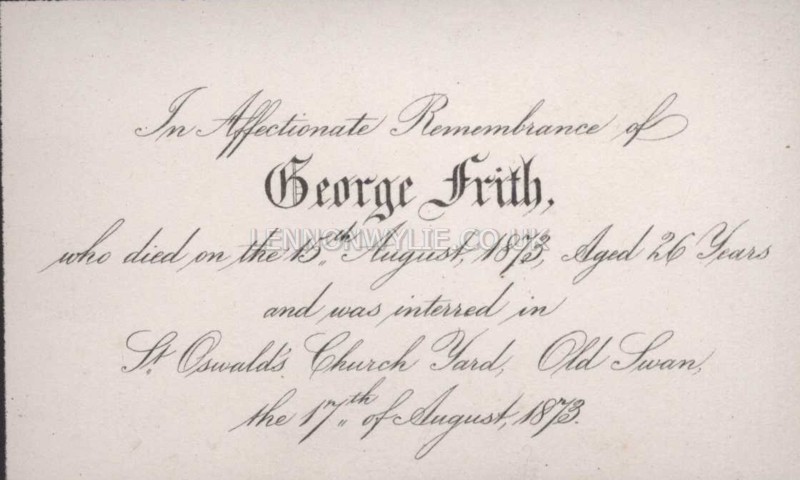 In Affectionate Remembrance of
George Frith,
who died on the 15th August, 1873, Aged 26 Years
LENNONWYLIE.CO.UK
and was interred in
St. Oswald's Church Yard, Old Swan,
the 17th of August, 1873.